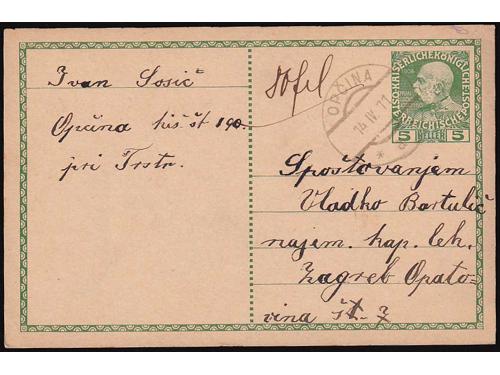 Ivan Sosič
Opčina hiš. št 190.
pri Trstu
80fil
OPČINA
14 IV. 11
KAISERLICHE KÖNIGLICHE
ÖSTERREICHISCHE
5 HELLER 5
Spoštovanjem
Vladko Bartulić
najem. kap. leh.
Zagreb Opato-
vina št. 7